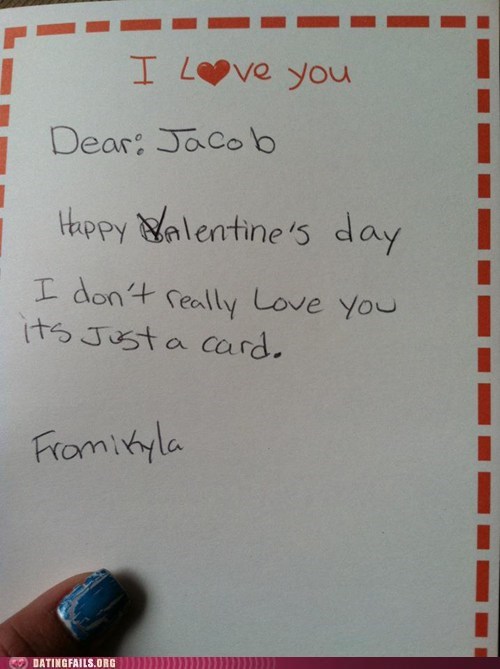 I L♥ve you
Dear: Jacob
Happy Valentine's day
I don't really Love you
its Just a card.
From: Kyla
DATINGFAILS.ORG